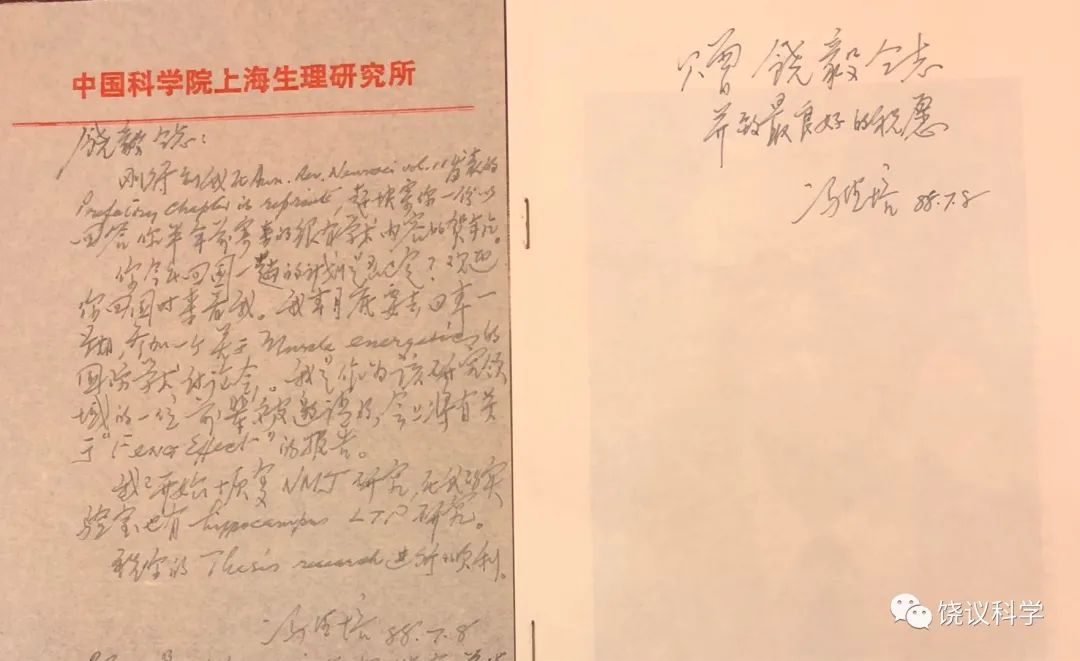 中国科学院上海生理研究所
饶毅同志：
刚得到我在Ann. Rev. Neurosci vol. 11发表的
Prefatory Chapter的reprints，赶快寄你一份以
回答你半年前寄来的很有学术内容的贺年片。
你今年回国一趟的计划是否已定？欢迎
你回国时来看我。我本月底要去日本一
行，参加一个关于Muscle energetics的
国际学术讨论会。我是作为该研究领
域的一位前辈被邀请的，会上将有关
于"Feng Effect"的报告。
我已开始恢复NMJ研究，在我的实
验室也有hippocampus LTP研究。
祝你的Thesis research进行顺利。
冯德培 88.7.8
赠饶毅同志
并致最良好的祝愿
冯德培 88.7.8
饶议科学